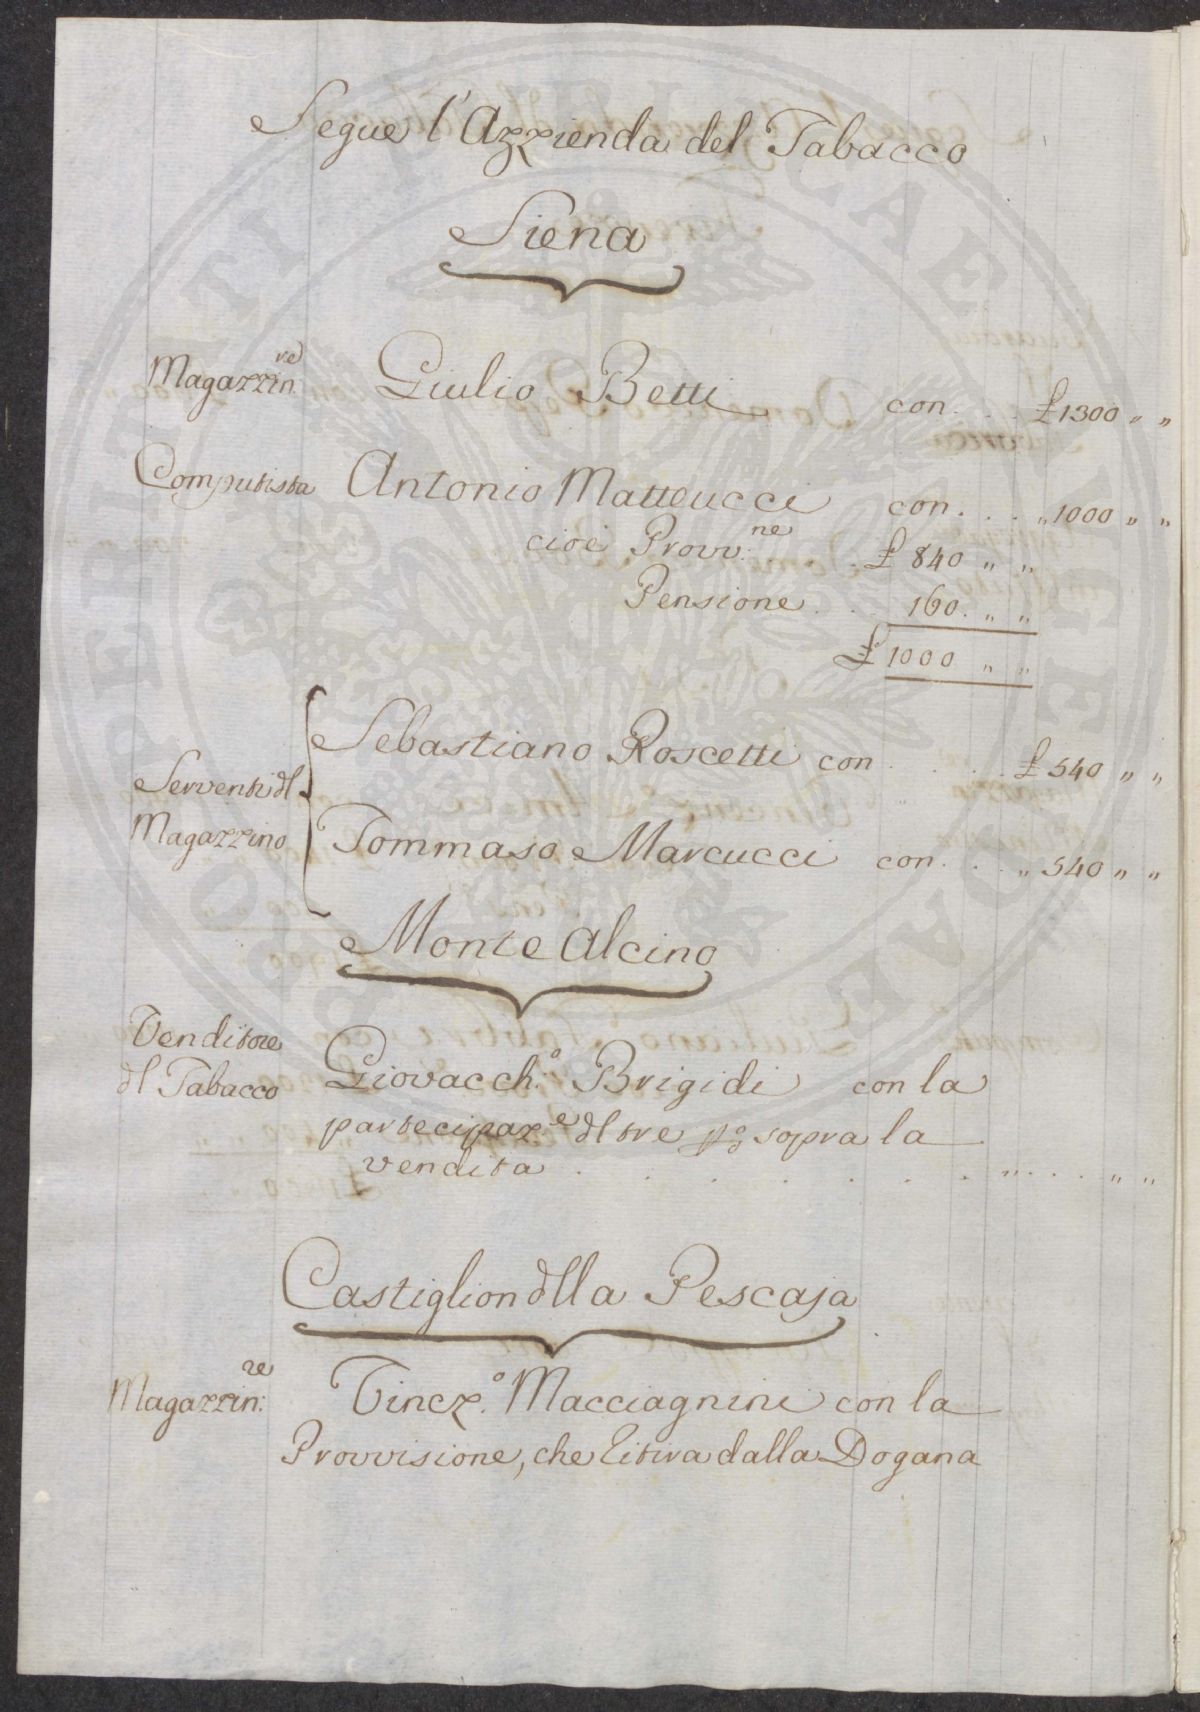 Segue l'Azzienda del Tabacco
Siena
Magazzin.re Giulio Betti con . . . £ 1300 " "
Computista Antonio Matteucci con . . . " 1000 " "
cioè Provv.ne . £ 840 " "
Pensione . . . 160. " "
£ 1000 " "
Sebastiano Roscetti con . . . . . £ 540 " "
Serventi dl
Magazzino
Tommaso Marcucci con . . . " 540 " "
Monte Alcino
Venditore
dl Tabacco
Giovacch.o Brigidi con la
partecipaz.e dl tre p% sopra la
vendita . . . . . . . " . . . " "
Castiglion dlla Pescaja
Magazzin:re Vincz.o Macciagnini con la
Provvisione, che Ritira dalla Dogana